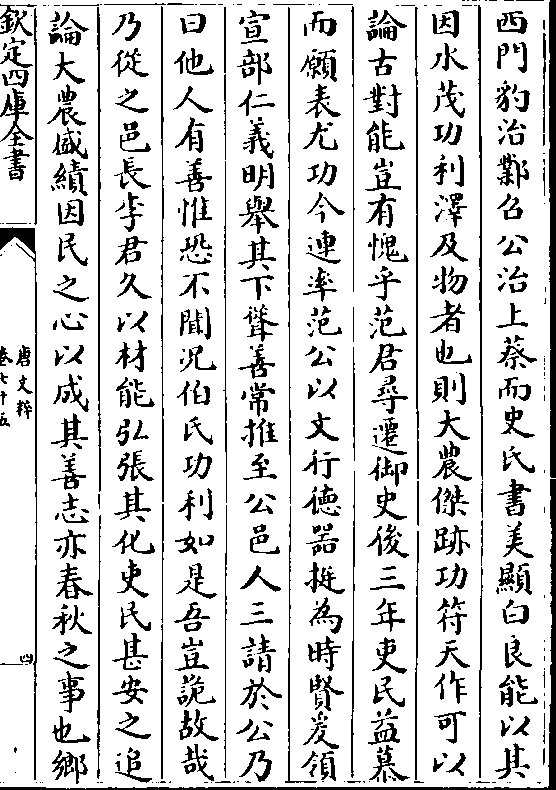 西門豹治鄴召公治上蔡而史氏書美顯白良能以其
因水茂功利澤及物者也則大農傑跡功符天作可以
論古對能豈有愧乎范君尋遷御史後三年吏民益慕
而願表尤功今連率范公以文行德器挺為時賢爰領
宣部仁義明舉其下聳善常推至公邑人三請於公乃
曰他人有善惟恐不聞况伯氏功利如是吾豈詭故哉
乃從之邑長李君久以材能弘張其化吏民甚安之追
論大農盛績因民之心以成其善志亦春秋之事也鄉
欽定四庫全書
唐文粹
卷七十五
四